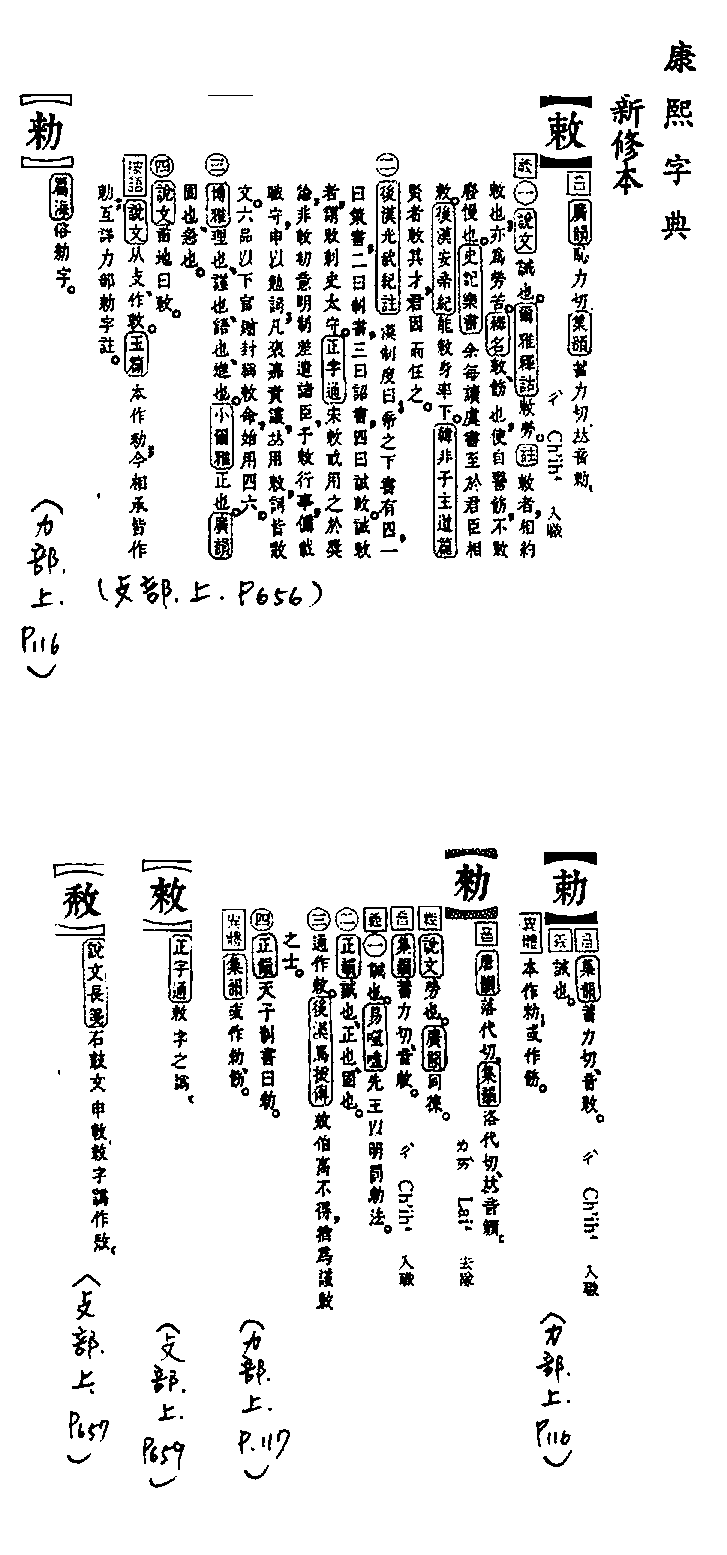 康熙字典
新修本
【敕】
音 廣韻 恥力切 集韻 蓄力切,𠀤音勅。
ㄔˋ Ch'ihˋ 入職
義 ㊀ 說文 誡也。爾雅釋詁 敕,勞。註 敕者,相約
敕也,亦為勞苦。釋名 敕,飭也,使自警飭不敢
廢慢也。史記樂書 余每讀虞書至於君臣相
敕。後漢安帝紀 能敕身率下。韓非子主道篇
賢者敕其才,君因而任之。
㊁ 後漢光武紀註 漢制度曰,帝之下書有四,一
曰策書,二曰制書,三曰詔書,四曰誡敕。誡敕
者,謂敕刺史太守。正字通 宋敕或用之於獎
諭,非敕初意,明制差遣諸臣,予敕行事,備載
職守,申以勉詞,凡褒嘉責讓,𠀤用敕,詞皆散
文,六品以下官贈封稱敕命,始用四六。
㊂ 博雅 理也,謹也,語也,進也。小爾雅 正也。廣韻
固也,急也。
㊃ 說文 臿地曰敕。
按語 說文 从攴,作敕。玉篇 本作勑,今相承皆作
勅,互詳力部勅字註。
(攴部.上.P656)
【勑】
篇海 俗勅字。
(力部.上.P116)
【勅】
音 集韻 蓄力切,音敕。 ㄔˋ Ch'ihˋ 入職
義 誡也。
異體 本作敕,或作飭。
(力部.上.P116)
【勑】
音 唐韻 落代切,集韻 洛代切,𠀤音賴。
ㄌㄞˋ Laiˋ 去隊
義 說文 勞也。廣韻 同徠。
音 集韻 蓄力切,音敕。 ㄔˋ Ch'ihˋ 入職
義 ㊀ 誡也。易噬嗑 先王以明罰勑法。
㊁ 正韻 誡也,正也,固也。
㊂ 通作敕。後漢馬援傳 效伯高不得,猶為謹敕
之士。
㊃ 正韻 天子制書曰勑。
異體 集韻 或作勅、飭。
(力部.上.P.117)
【敇】
正字通 敕字之譌。
(攴部.上.P659)
【敄】
說文長箋 石鼓文申敕,敕字譌作敄。
(攴部.上.P657)